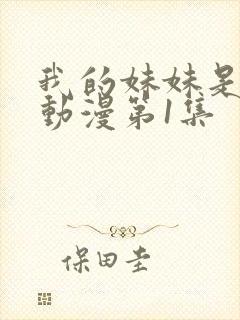 我的妹妹是
動漫第1集
保田圭